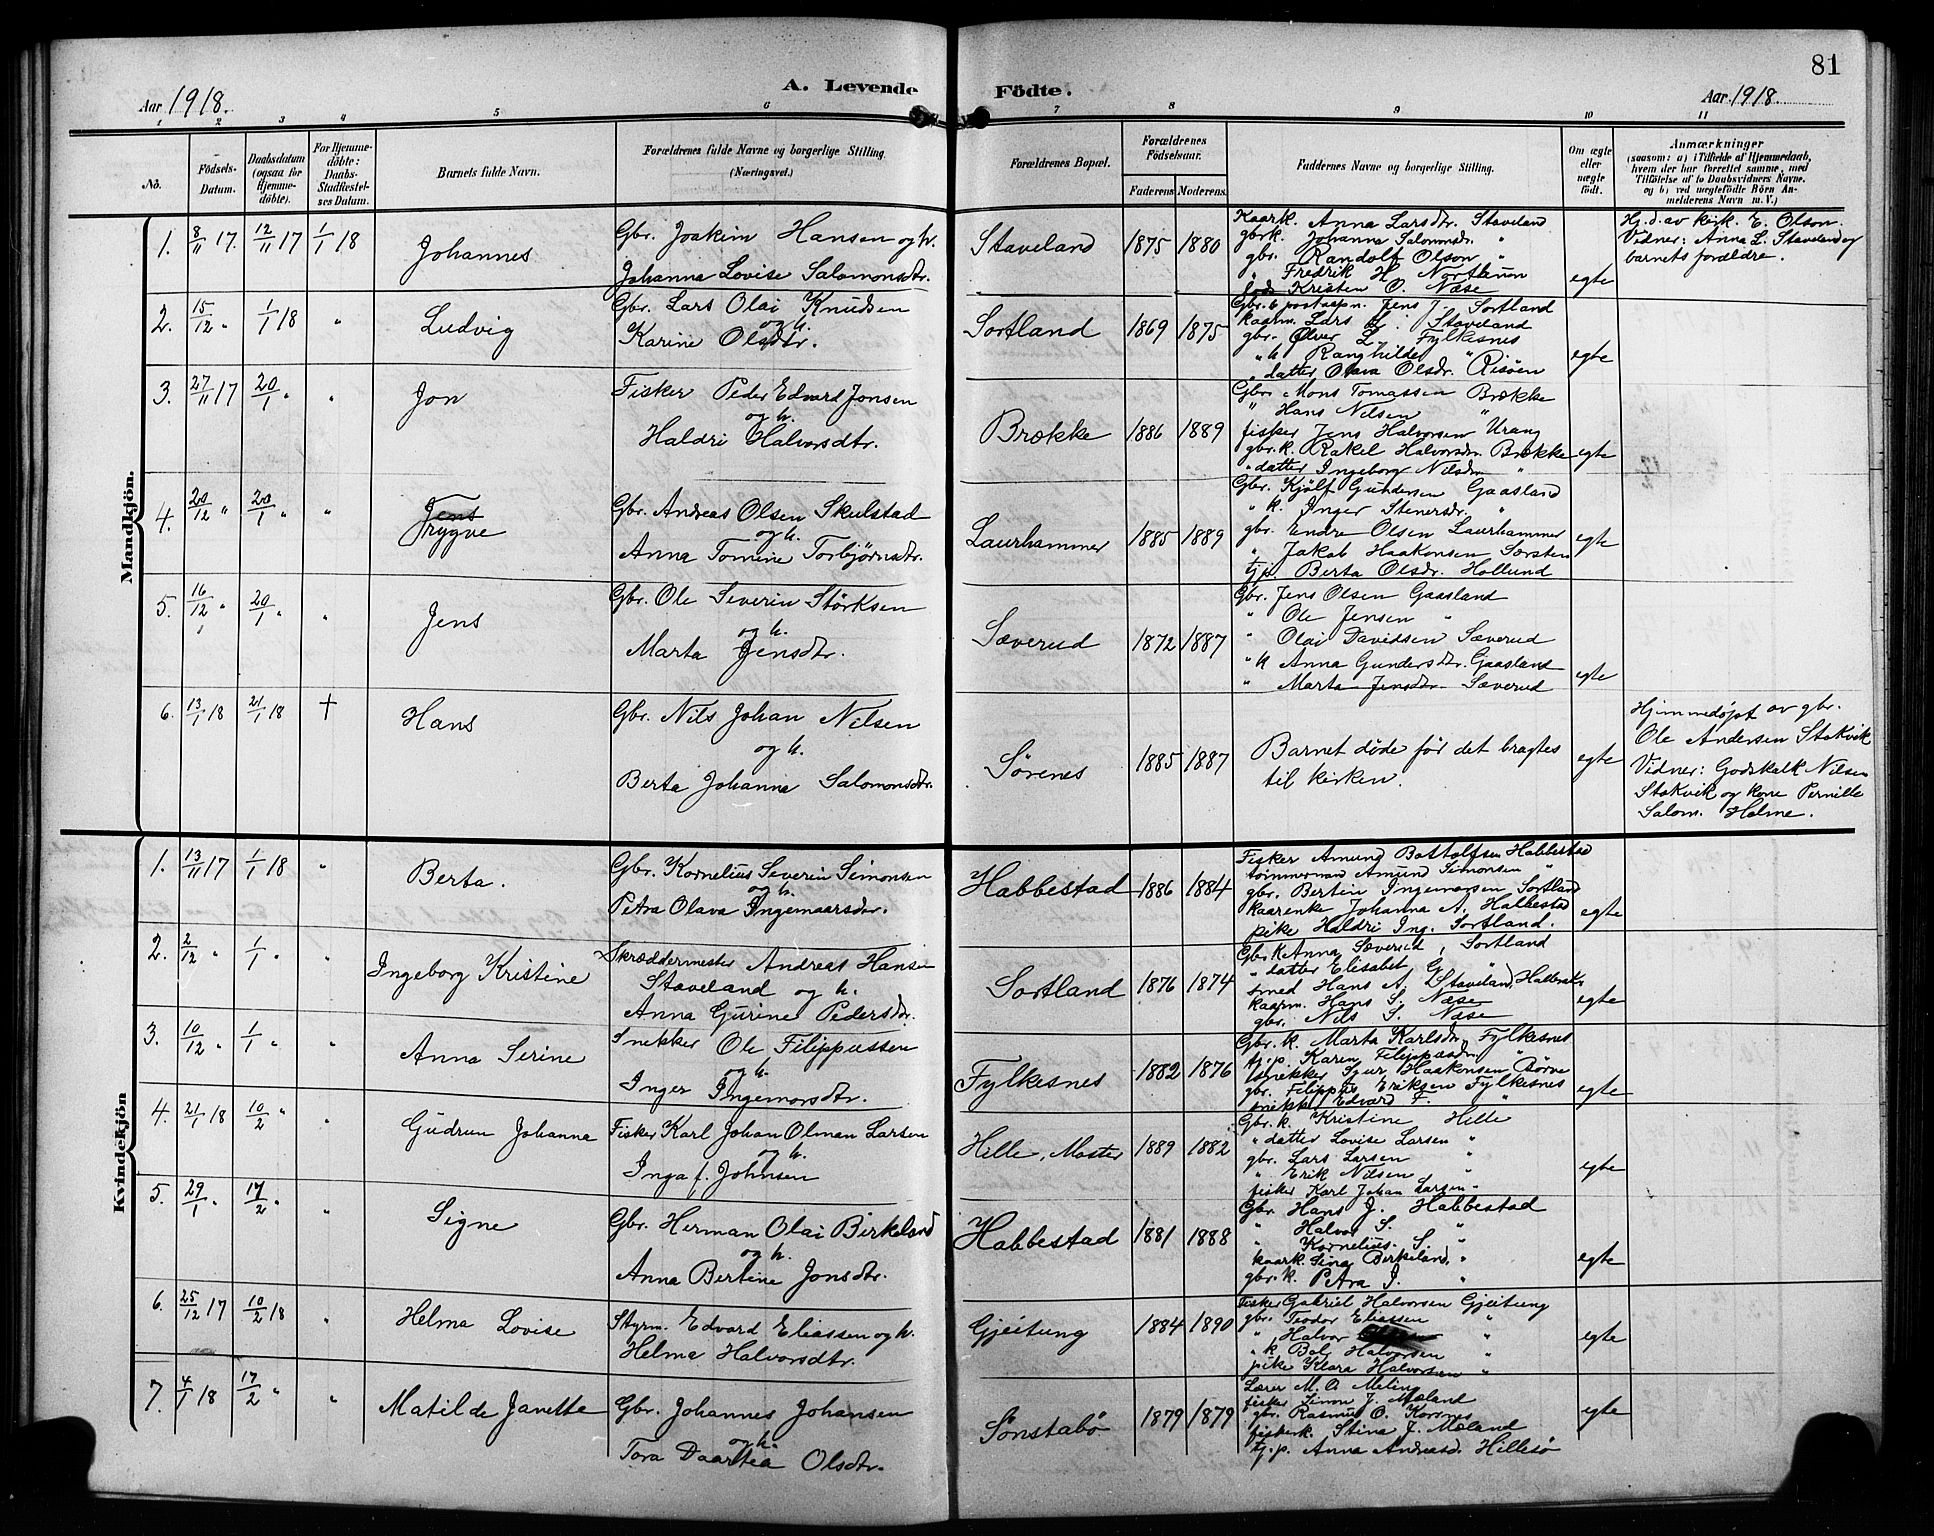 81
Aar 1918.
A. Levende Födte.
Aar 1918
1 2 3 4 5 6 7 8 9 10 11
No.
Födsels-Datum.
Daabsdatum (ogsaa for Hjemme-döbte).
For Hjemme-döbte: Daabs-Stadfæstel-ses Datum.
Barnets fulde Navn.
Forældrenes fulde Navne og borgerlige Stilling. (Næringsvei.)
Forældrenes Bopæl.
Forældrenes Födselsaar.
Faderens. Moderens.
Faddernes Navne og borgerlige Stilling.
Om ægte eller uægte födt.
Anmærkninger
(saasom: a) i Tilfælde af Hjemmedaab, hvem der har forrettet samme, med Tilföielse af to Daabsvidners Navne, og b) ved uægtefödte Börn An-melderens Navn m. V.)
Mandkjön.
1. 8/11 17. 12/11 17 1/1 18 Johannes
Gbr. Joakim Hansen og h.
Johanna Lovise Salomonsdtr.
Staveland 1875 1880
Kaark. Anna Larsdtr. Staveland
gbrk. Johanna Salomonsdr. "
gbr. Randolf Olson "
" Fredrik H. Nortun
Kristen O. Næse
egte
Hj. d. av kirk. E. Olson.
Vidner: Anna L. Staveland og
barnets forældre.
2. 15/12 " 1/1 18 " Ludvig
Gbr. Lars Olai Knudsen
og h.
Karine Olsdtr.
Sortland 1869 1875
Gbr. & postaapn. Jens J. Sortland
kaarm. Lars L. Staveland
gbr. Ølver L. Fylkesnes
" k Ranghilde " Risöen
" datter Olava Olsdr.
egte
3. 27/11 17 20/1 " " Jon
Fisker Peder Edvard Jonsen
og h.
Haldri Halvorsdtr.
Brække 1886 1889
Gbr. Mons Tomassen Brække
" Hans Nilsen "
fisker Jens Halvorsen Urang
gbr. k. Rakel Halvorsdr. Brække
" datter Ingeborg Nilsdr. "
egte
4. 20/12 " 20/1 " " Jens
Trygve
Gbr. Andreas Olsen Skulstad
og h.
Anna Tomine Torbjørnsdtr.
Laurhammer 1885 1889
Gbr. Kjölf Gundersen Gaasland
" k. Inger Stenersdr. "
gbr. Endre Olsen Laurhammer
" Jakob Haakonsen Særsten
tj.p. Berta Olsdr. Hollund
egte
5. 16/12 " 20/1 " " Jens
Gbr. Ole Severin Störksen
og h.
Marta Jensdtr.
Sæverud 1872 1887
Gbr. Jens Olsen Gaasland
" Ole Jensen "
" Olai Davidsen Sæverud
" k Anna Gundersdtr. Gaasland
" Marta Jensdtr. Sæverud
egte
6. 13/1 18 21/1 18 † Hans
Gbr. Nils Johan Nilsen
og h.
Berta Johanna Salomonsdtr.
Sørenes 1885 1887
Barnet døde før det bragtes
til kirken.
egte
Hjemmedøpt av gbr.
Ole Andersen Stokvik
Vidner: Godskalk Nilsen
Stokvik og kone Pernille
Salom. Holme.
Kvindekjön
1. 13/11 17 1/1 18 " Berta.
Gbr. Kornelius Severin Simonsen
og h.
Petra Olava Ingemaarsdtr.
Habbestad 1886 1884
Fisker Amund Bottolfsen Habbestad
tömmerman Amund Simonsen "
gbr. Bertin Ingemorsen Sortland
kaarenke Johanna A. Habbestad
pike Haldri Ing. Sortland.
egte
2. 2/12 " 1/1 " " Ingeborg Kristine
Skræddermester Andreas Hansen
Staveland og h.
Anna Gurine Pedersdtr.
Sortland 1876 1874
Gbr. k Anna Sæverud, Sortland
" datter Elisabet G "
smed Hans A. Staveland,
kaarm. Hans S. Næse
gbr. Nils S. Næse
egte
3. 10/12 " 1/1 " " Anna Serine
Snekker Ole Filippussen
og h.
Inger Ingemorsdtr.
Fylkesnes 1882 1876
Gbr. k. Marta Karlsdtr. Fylkesnes
tj.p. Karen Filippusdr. "
snekker Sjur Haakonsen Børve
gbr. Filippus Eriksen Fylkesnes
snekker Edvard F. "
egte
4. 21/1 18 10/2 " " Gudrun Johanna
Fisker Karl Johan Olman Larsen
og h.
Inga f. Johnsen
Hille, Moster 1889 1882
Gbr. k. Kristine Hille
" datter Lovise Larsen "
gbr. Lars Larsen "
" Erik Nilsen "
fisker Karl Johan Larsen "
egte
5. 29/1 " 17/2 " " Signe
Gbr. Herman Olai Birkeland
og h.
Anna Bertine Jonsdtr.
Habbestad 1881 1888
Gbr. Hans J. Habbestad
" Halvor S. "
" Kornelius S. "
kaark. Sina Birkeland "
gbr. k. Petra I. "
egte
6. 25/12 17 10/2 18 " Helma Lovise
Styrm. Edvard Eliassen og h.
Helma Halvorsdtr.
Gjeitung 1884 1890
Fisker Gabriel Halvorsen Gjeitung
gbr. Teodor Eliassen "
" Halvor "
" k Bol. Halvorsen "
pike Klara Halvorsen "
egte
7. 4/1 18 17/2 " " Matilde Janette
Gbr. Johannes Johansen
og h.
Tora Daartea Olsdtr.
Sönstabö 1879 1879
Lærer M. O. Meling
fisker Simon J. Mæland
gbr. Rasmus O. Korsnes
fiskerk. Stina J. Mæland
tj.p. Anna Andreasd. Hillesö
egte